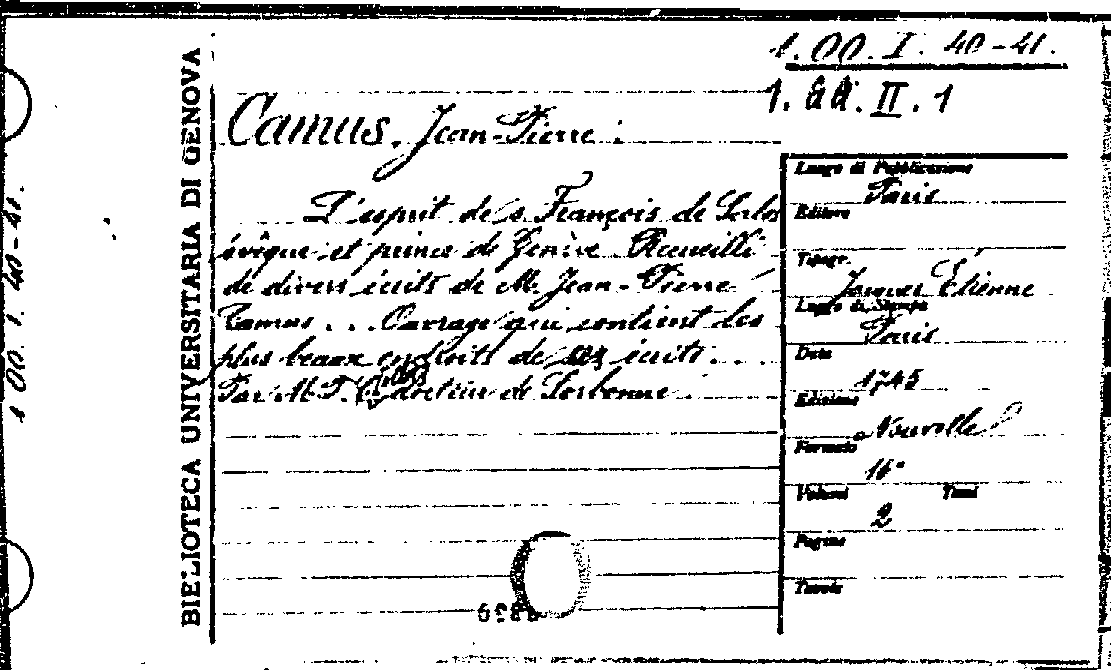 1.OO.I. 40-41.
1. OO. II. 1
Camus, Jean-Pierre:
L'esprit de s. François de Sales
évêque et prince de Genève. Recueilli
de divers écrits de M. Jean-Pierre
Camus ... Ouvrage qui contient les
plus beaux endroits de ses écrits...
Par M. P. C. docteur de Sorbonne.
BIBLIOTECA UNIVERSITARIA DI GENOVA
1 OO. I. 40-41.
Luogo di Pubblicazione
Paris
Editore
Tipogr.
Jacques Étienne
Luogo di Stampa
Paris
Data
1745
Edizione
Nouvelle
Formato
16°
Volumi Tomi
2
Pagine
Tavole